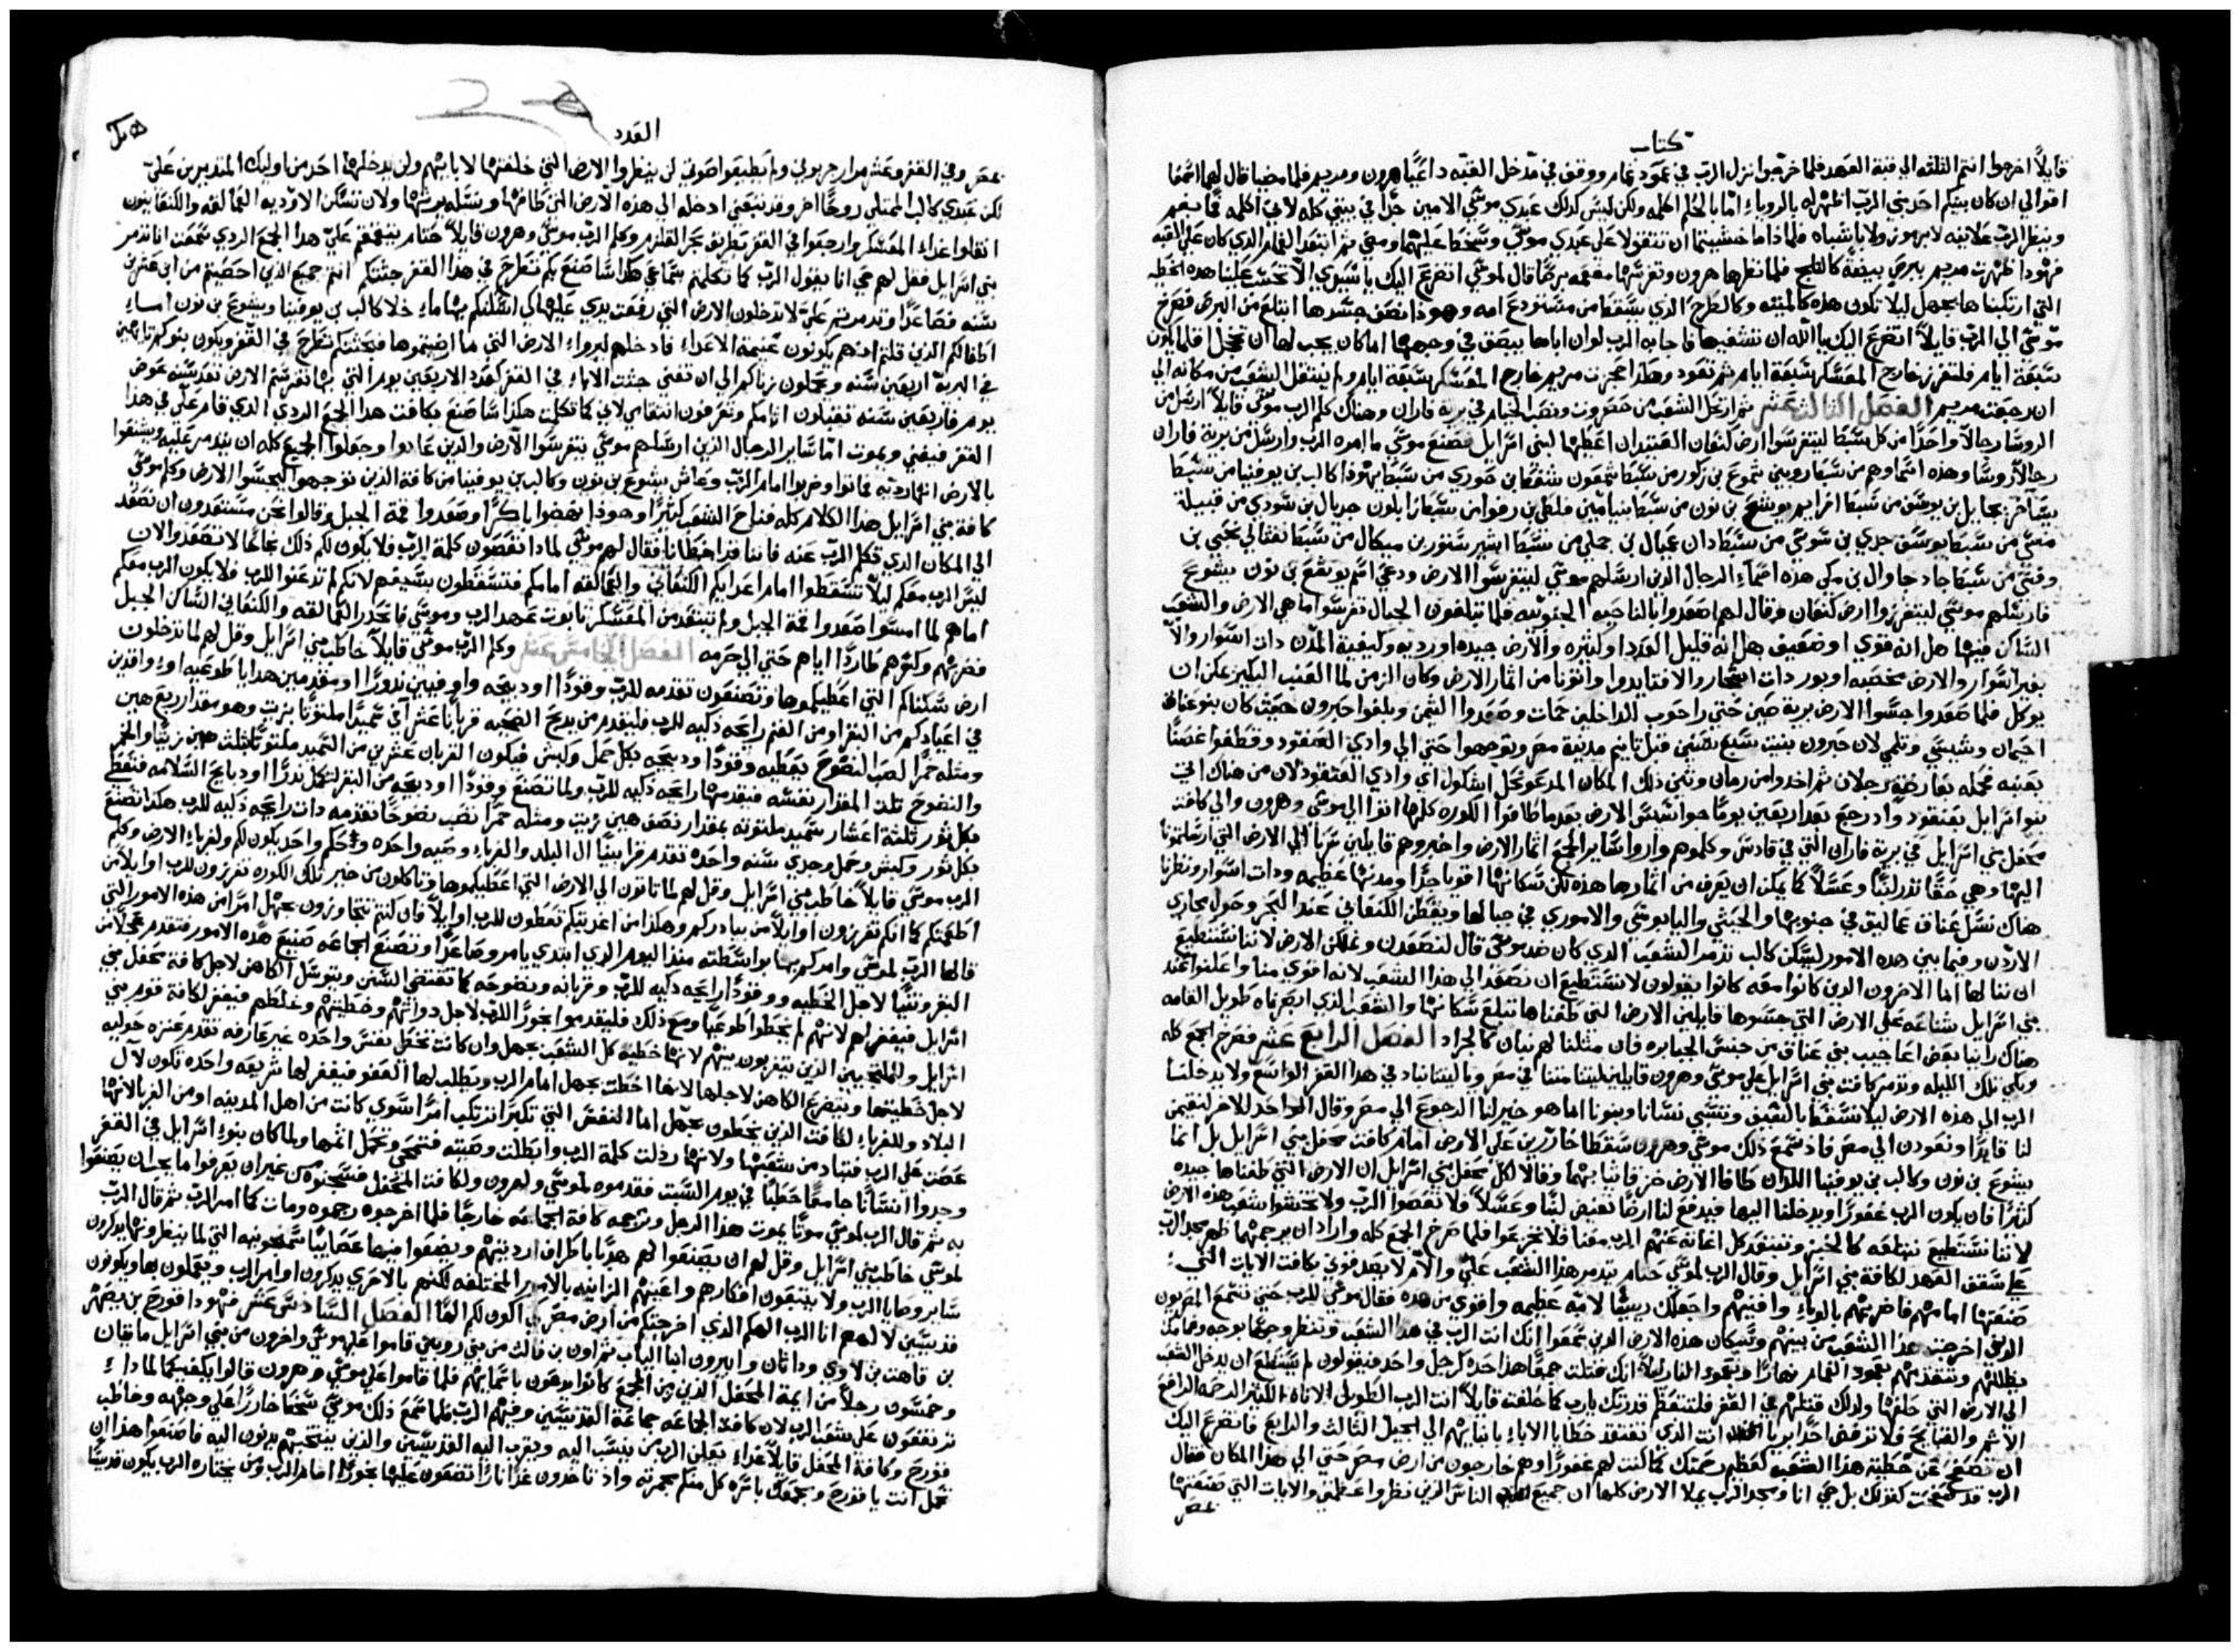 كتاب
قايلاً اخرجوا انتم الثلثه الي قبة العهد فلما خرجوا نزل الرب في عمود غمام ووقف في مدخل القبه داعياً هرون ومريم فلما مضيا قال لهما اسمعا
اقوالي ان كان بينكم احد نبي الرب اظهر له بالروياء امّا بالحلم اكلمه ولكن ليس كذلك عبدي موسي الامين جداً في بيتي كله لاني اكلمه فماً بفم
وينظر الرب علانيه لا برموز ولا باشباه فلماذا ما خشيتما ان تتقولا علي عبدي موسي وسخط عليهما ومضي ثم ابتعد الغمام الذي كان علي القبه
فهوذا ظهرت مريم بابرص بيضة كالثلج فلما نظرها هرون وتفرسها مغممه برصًا قال لموسي اتضرع اليك يا سيدي الا تحسب علينا هذه الخطيه
التي ارتكبناها بجهل ليلا تكون هذه كالميته وكالطرح الذي يسقط من مستودع امه وهوذا نصف جسدها ابتلع من البرص فصرخ
موسي الي الرب قايلاً اتضرع اليك يا الله ان تشفيها فاجابه الرب لو ان اباها يبصق في وجهها اما كان يجب لها ان تخجل فلما يكون
سبعة ايام فلتفرز خارج المعسكر سبعة ايام ثم تعود وهكذا حجزت مريم خارج المعسكر سبعة ايام ولم ينتقل الشعب من مكانه الي
ان رجعت مريم الفصل الثالث عشر ثم ارتحل الشعب من حصروت ونصب الخيام في برية فاران وهناك كلم الرب موسي قايلاً ارسل من
الروسا رجالاً واحداً من كل سبط ليتفرسوا ارض كنعان العتيد ان اعطيها لبني اسرايل فصنع موسي ما امره الرب وارسل من برية فاران
رجالاً روسًا وهذه اسماوهم من سبط روبين شموع بن زكور من سبط شمعون شفط بن حوري من سبط يهوذا كالب بن يوفنيا من سبط
يساخر يجايل بن يوسف من سبط افرايم يوشع بن نون من سبط بنيامين فلطي بن رفوا من سبط زابلون جديال بن سودي من قبيلة
منسي من سبط يوسف جدي بن سوسي من سبط دان عميال بن جملي من سبط اشير ستور بن ميكال من سبط نفتالي نحبي بن
وفسي من سبط جاد جاوال بن مكي هذه اسماء الرجال الذين ارسلهم موسي ليتفرسوا الارض ودعي اسم يوشع بن نون يشوع
فارسلهم موسي ليتفرزوا ارض كنعان وقال لهم اصعدوا بالناحيه الجنوبيه فلما تبلغون الجبال تفرسوا ما هي الارض والشعب
الساكن فيها هل انه قوي او ضعيف هل انه قليل العدد او كثيره والارض جيده او رديه وكيفية المدن ذات اسوار والّا
بغير اسوار والارض مخصبه او بور ذات اشجار والا فتايدوا واتونا من اثمار الارض وكان الزمن لما العنب البكير يمكن ان
يوكل فلما صعدوا جسّوا الارض برية صين حتي راحوب للداخلين حمات وصعدوا التيمن وبلغوا حبرون حيث كان بنو عناق
احيمان وشيشي وتلمي لان حبرون بنيت سبع سنين قبل تانيم مدينة مصر وتوجهوا حتي الي وادي العنقود وقطفوا غصنًا
بعنبه محمله بعارضه رجلان ثم اخذوا من رمان وتين ذلك المكان المدعو نحل اشكول اي وادي العنقود لان من هناك اتي
بنو اسرايل بعنقود واذ رجع بعد اربعين يومًا جواسيس الارض بعد ما طافوا الكوره كلها اتوا الي موسي وهرون والي كافت
محفل بني اسرايل في برية فاران التي في قادس وكلموهم واروا ساير الجمع اثمار الارض واخبروهم قايلين سرنا الي الارض التي ارسلتمونا
اليها وهي حقًا تدر لبنًا وعسلاً كما يمكن ان يعرف من اثمارها هذه لكن سكانها اقويا جدًا ومدنها عظيمه وذات اسوار ونظرنا
هناك نسل عناق عماليق في جنوبها والحيثي واليابوسي والاموري في جبالها ويقطن الكنعاني عند البحر وحول مجاري
الاردن وفيما بين هذه الامور ليسكن كالب تذمر الشعب الذي كان ضد موسي قال لنصعدن ونملكن الارض لاننا نستطيع
ان ننالها اما الاخرون الذين كانوا معه كانوا يقولون لا نستطيع ان نصعد الي هذا الشعب لانه اقوي منا واعلنوا عند
بني اسرايل شناعه علي الارض التي جسوها قايلين الارض التي طفناها تبتلع سكانها والشعب الذي ابصرناه طويل القامه
هناك راينا بعض اعاجيب بني عناق من جنس الجبابره فان مثلنا لهم نبان كالجراد الفصل الرابع عشر فصرخ الجمع كله
وبكي تلك الليله وتذمر كافت بني اسرايل علي موسي وهرون قايلين ليتنا متنا في مصر ويا ليتنا نباد في هذا القفر الواسع ولا يدخلنا
الرب الي هذه الارض ليلا نسقط بالسيف وتسبي نسانا وبنونا اما هو خير لنا الرجوع الي مصر وقال الواحد للاخر لنقيمن
لنا قايدًا ونعودن الي مصر فاذ سمع ذلك موسي وهرون سقطا خارّين علي الارض امام كافت محفل بني اسرايل بل انما
يشوع بن نون وكالب بن يوفنيا اللذان طافا الارض خرقا ثيابهما وقالا لكل محفل بني اسرايل ان الارض التي طفناها جيده
كثيرًا فان يكون الرب غفورًا ويدخلنا اليها فيدفع لنا ارضًا تفيض لبنًا وعسلاً فلا تعصوا الرب ولا تخشوا شعب هذه الارض
لاننا نستطيع نبتلعه كالخبز وتبتعد كل اغاثه عنهم الرب معنا فلا تجزعوا فلما صرخ الجمع كله واراد ان يرجمهما ظهر مجد الرب
علي سقف العهد لكافة بني اسرايل وقال الرب لموسي حتام يتذمر هذا الشعب عليّ والام لا يصدقوني بكافت الايات التي
صنعتها امامهم فاضربهم بالوباء وافنيهم واجعلك رييسًا لامة عظيمه واقوي من هذه فقال موسي للرب حتي تسمع المصريون
الذين اخرجت هذا الشعب من بينهم وسكان هذه الارض الذين سمعوا انك انت الرب في هذا الشعب وتنظر وجهًا بوجه وغمامك
يظللهم وتتقدمهم بعمود الغمام نهارًا وبعمود النار ليلاً انك قتلت جمعًا هذا حده كرجل واحد فيقولون لم يستطع ان يدخل الشعب
الي الارض التي حلفها ولذلك قتلهم في القفر فلتتعظم قدرتك يا رب كما حلفت قايلاً انت الرب الطويل الاناه الكثير الرحمه الرافع
الاثم والقبايح فلا ترفض احدًا بريا انت الذي تفتقد خطايا الاباء بابنايهم الي الجيل الثالث والرابع فاتضرع اليك
ان تصفح عن خطية هذا الشعب كعظم رحمتك كما كنت لهم غفورًا وهم خارجون من ارض مصر حتي الي هذا المكان فقال
الرب قد صفحت كقولك بل حي انا ومجد الرب يملا الارض كلها ان جميع الناس الذين نظروا عظمتي والايات التي صنعتها
بمصر
العدد
بمصر وفي القفر وعشر مرار جربوني ولم يطيعوا صوتي لن ينظروا الارض التي حلفتها لابايهم ولن يدخلها احد من اوليك المتذمرين عليّ
لكن عبدي كالب الممتلي روحًا اخر وقد تبعني ادخله الي هذه الارض التي طافها ونسله يرثها ولان تسكن الاوديه العمالقه والكنعانيون
انقلوا غداء المعسكر وارجعوا في القفر بطريق بحر القلزم وكلم الرب موسي وهرون قايلاً حتام يتقمقم عليّ هذا الجمع الردي سمعت انا تذمر
بني اسرايل فقل لهم حي انا يقول الرب كما تكلمتم بسماعي هكذا ساصنع بكم تنطرح في هذا القفر جثثكم انتم جميع الذين احصيتم من ابن عشرين
سنه فصاعدًا وتذمرتم عليّ لا تدخلون الارض التي رفعت يدي عليها كي اسكنكم بها ما خلا كالب بن يوفنيا ويشوع بن نون اما
اطفالكم الذين قلتم انهم يكونون غنيمة الاعداء فادخلهم ليروا الارض التي ما ارضتموها فجثثكم تطرح في القفر ويكون بنوكم تايهين
في البرية اربعين سنه ويحملون زناكم الي ان تفني جثت الاباء في القفر كعدد الاربعين يومًا التي بها تفرستم الارض تعد سنه عوض
يوم فاربعين سنه تقبلون اثامكم وتعرفون انتقامي لاني كما تكلمت هكذا ساصنع بكافت هذا الجمع الردي الذي قام عليّ في هذا
القفر فيفني ويموت امّا ساير الرجال الذين ارسلهم موسي يتفرسوا الارض والذين عادوا وجعلوا الجمع كله ان يتذمر عليه ويشنعوا
بالارض انها رديه فماتوا وضربوا امام الرب وعاش يشوع بن نون وكالب بن يوفنيا من كافة الذين توجهوا ليجسّوا الارض وكلم موسي
كافة بني اسرايل هذا الكلام كله فناح الشعب كثيرًا وهوذا نهضوا باكرًا وصعدوا قمة الجبل وقالوا نحن مستعدون ان نصعد
الي المكان الذي تكلم الرب عنه فاننا قد اخطانا فقال لهم موسي لماذا تتعدون كلمة الرب فلا يكون لكم ذلك نجاحًا لا تصعدوا لان
ليس الرب معكم ليلاّ تسقطوا امام اعدايكم الكنعاني والعمالقه امامكم فتسقطون بسيفهم لانكم لم تذعنوا للرب فلا يكون الرب معكم
اما هم لما امسوا صعدوا قمة الجبل ولم يبتعد من المعسكر تابوت عهد الرب وموسي فانحدر العمالقه والكنعاني الساكن الجبل
فضربهم وكسرهم طاردًا اياهم حتي الي حرمه الفصل الخامس عشر وكلم الرب موسي قايلاً خاطب بني اسرايل وقل لهم لما تدخلون
ارض سكناكم التي اعطيكموها وتصنعون تقدمه للرب وقودًا او ذبيحه واو فيين نذورًا او متقدمين هدايا طوعيه او واقدين
في اعيادكم من البقر او من الغنم رايحه ذكيه للرب فليقدم من يذبح الضحيه قربانًا عشر ايفي سميدًا ملتوتًا بزيت وهو مقدار ربع هين
ومثله خمرًا لصب النضوح يعطيه وقودًا او ذبيحه بكل حمل وكبش فيكون القربان عشرين من السميد ملتوتًا بثلث هين زيتًا والخمر
والنضوح ثلث المقدار نفسه فيقدمها رايحه ذكيه للرب ولما تصنع وقودًا او ذبيحه من البقر لتكمل نذرًا او ذبايح السلامه فتعطي
بكل ثور ثلثة اعشار سميد ملتوته بمقدار نصف هين زيت ومثله خمرًا نصب نضوحًا تقدمه ذات رايحه ذكيه للرب هكذا تصنع
بكل ثور وكبش وحمل وجدي سنه واحده تقدم قرابينًا ال البلد والغرباء وصيه واحده وحكم واحد يكون لكم ولغرباء الارض وكلم
الرب موسي قايلاً خاطب بني اسرايل وقل لهم لما تاتون الي الارض التي اعطيكموها وتاكلون من خبز تلك الكوره تفرزون للرب اوايلاً من
اطعمتكم كما انكم تفرزون اوايلاً من بيادركم وهكذا من اعجنتكم تعطون للرب اوايلاً فان كنتم تتجاوزون بجهل امرًا من هذه الامور التي
قالها الرب لموسي وامركم بها بواسطته منذ اليوم الذي ابتدي يامر وصاعدًا وتصنع الجماعه صنيع هذه الامور فتقدم عجلاً من
البقر وتيسًا لاجل الخطيه ووقودًا رايحه ذكيه للرب وقربانه ونضوحه كما تقتضي السنن ويتوسل الكاهن لاجل كافة محفل بني
اسرايل فيغفر لهم لانهم لم يخطوا طوعيًا ومع ذلك فليقدموا بخورًا للرب لاجل ذواتهم وخطيتهم وغلطهم فيغفر لكافة قوم بني
اسرايل وللملتجيين الذين يتغربون بينهم لانها خطية كل الشعب بجهل وان كانت تخطي نفس واحده غير عارفه تقدم عنزه حوليه
لاجل خطيتها ويتضرع الكاهن لاجلها لانها اخطت بجهل امام الرب ويطلب لها العفو فيغفر لها شريعه واحده تكون لآل
البلاد وللغرباء لكافت الذين يخطون بجهل اما النفس التي تكبرًا ترتكب امرًا سوي كانت من اهل المدينه او من الغربا لانها
عصت علي الرب فتباد من شعبها ولانها رذلت كلمة الرب وابطلت وصيته فتمحي وتحمل اثمها ولما كان بنوء اسرايل في القفر
وجدوا انسانًا جامعًا حطبًا في يوم السبت فقدموه لموسي وهرون ولكافت المحفل فسجنوه من غير ان يعرفوا ما يجب ان يصنعوا
به ثم قال الرب لموسي موتًا يموت هذا الرجل وترجمه كافة الجماعه خارجًا فلما اخرجوه رجموه ومات كما امر الرب ثم قال الرب
لموسي خاطب بني اسرايل وقل لهم ان يصنعوا لهم هدبًا باطراف ارديتهم ويضعوا فيها عصايبًا سمنجونيه التي لما ينظرونها يذكرون
ساير وصايا الرب ولا يتبعون افكارهم واعينهم الزانيه بالامور المختلفه لكنهم بالاحري يذكرون اوامر الرب ويعملون بها ويكونون
قديسين لالههم انا الرب الهكم الذي اخرجتكم من ارض مصر كي اكون لكم الهًا الفصل السادس عشر فهوذا قورح بن يصهر
بن قاهت بن لاوي وداثان وابيرون ابنا الياب ثم اون بن فالت من بني روبين قاموا علي موسي واخرون من بني اسرايل مايتان
وخمسون رجلاً من ايمة المحفل الذين حين المجمع كانوا يدعون باسمايهم فلما قاموا علي موسي وهرون قالوا يكفيكما لماذا
ترتفعون علي شعب الرب لان كافة الجماعه جماعة القديسين وفيهم الرب فلما سمع ذلك موسي سقط خارًا علي وجهه وخاطب
قورح وكافة المحفل قايلاً غداء يعلن الرب من ينسب اليه ويقرب اليه القديسين والذين ينتخبهم يدنون اليه فاصنعوا هذا ان
تحمل انت يا قورح ومجمعك باسره كل منكم مجمرته واذ تاخذون غدًا نارًا تضعون عليها بخورًا امام الرب ومن يختاره الرب يكون قديسًا